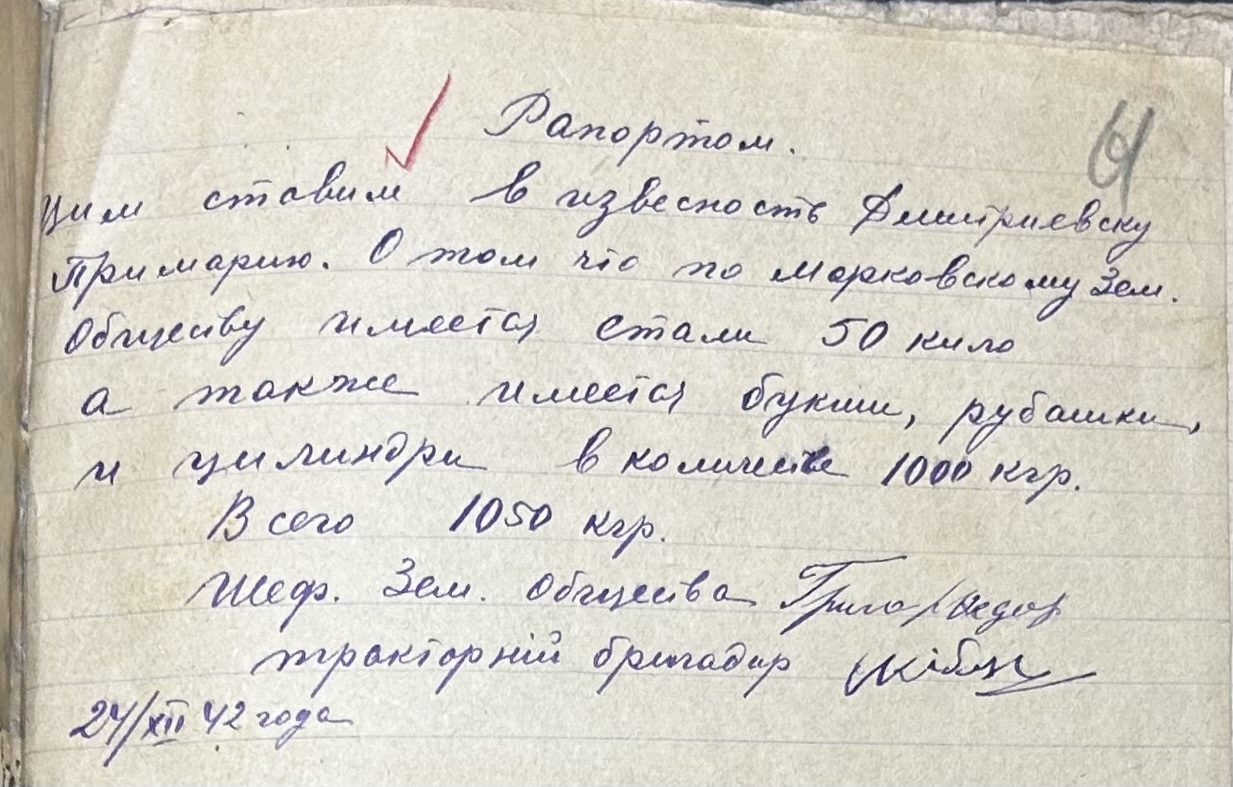 Рапортом.
Цим ставим в извесность Дмитриевску
Примарию. О том что по Марковскому Зем.
Обществу имеется стали 50 кило
а также имеется букши, рубашки,
и цилиндри в количестве 1000 кгр.
Всего 1050 кгр.
Шеф. Зем. Общества
тракторній бригадир
24/XII 42 года